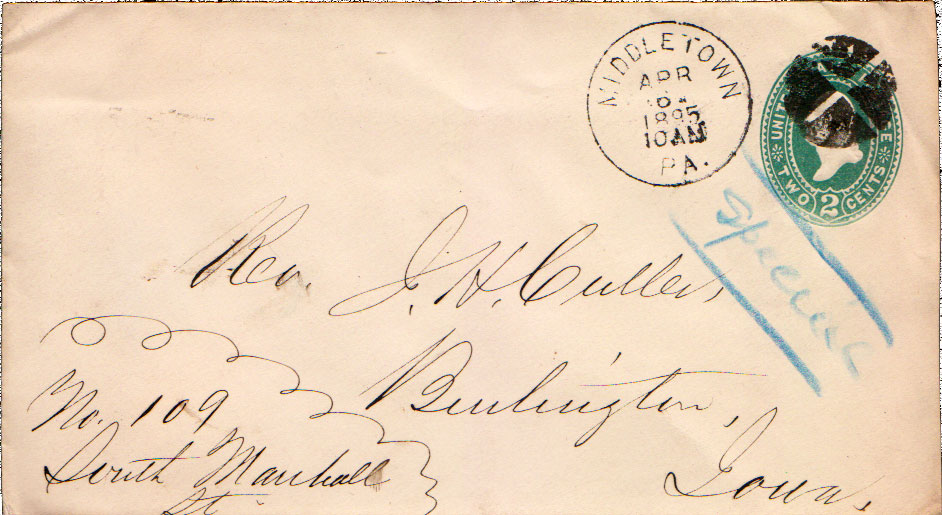 MIDDLETOWN
APR
1895
10AM
PA.
UNITE
E
TWO 2 CENTS
Special
Rev. J. H. Culler,
Burlington,
Iowa.
No. 109
South Marshall
St